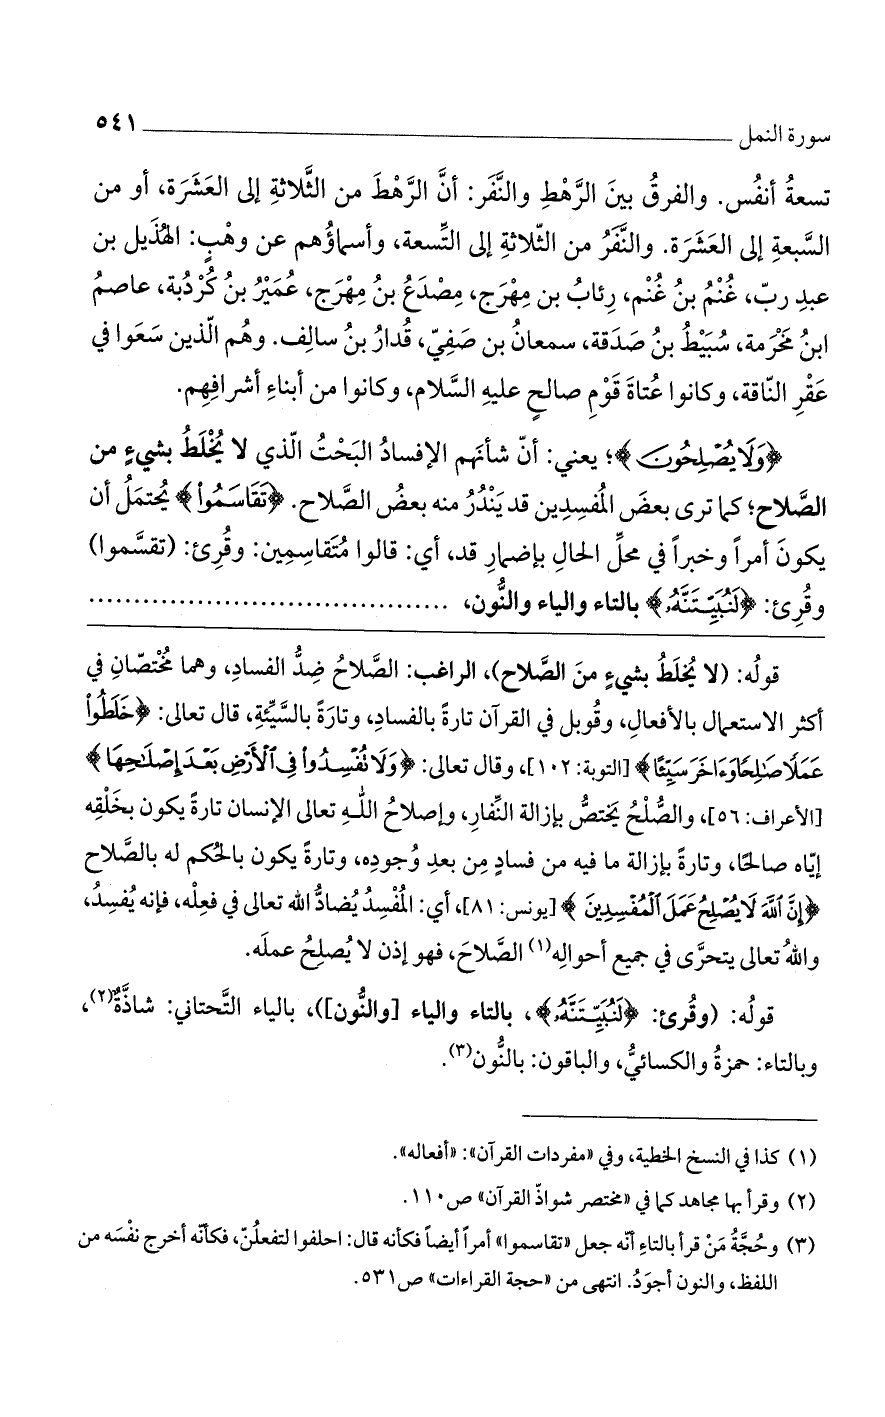 سورة النمل ٥٤١
تسعةُ أنفُس. والفرقُ بينَ الرَّهْطِ والنَّفَر: أنَّ الرَّهْطَ من الثَّلاثةِ إلى العَشَرَة، أو من
السَّبعةِ إلى العَشَرَة. والنَّفَرُ من الثّلاثةِ إلى التِّسعة، وأسماؤُهم عن وهْبٍ: الهُذَيل بن
عبدِ ربّ، غُنْمُ بنُ غُنْم، رِئابُ بن مِهْرَج، مِصْدَعُ بنُ مِهْرَج، عُمَيْرُ بنُ كُرْدُبة، عاصمُ
ابنُ مَخْرَمة، سُبَيْطُ بنُ صَدَقة، سمعانُ بن صَفِيّ، قُدارُ بنُ سالِف. وهُم الّذين سَعَوا في
عَقْرِ النّاقة، وكانوا عُتاةَ قَوْمِ صالحٍ عليهِ السَّلام، وكانوا من أبناءِ أشرافِهِم.
﴿وَلَا يُصْلِحُونَ﴾؛ يعني: أنّ شأنَهم الإفسادُ البَحْتُ الّذي لا يُخْلَطُ بشيءٍ من
الصَّلاح؛ كما ترى بعضَ المُفسِدِين قد يَنْدُرُ منه بعضُ الصَّلاح. ﴿تَقَاسَمُوا۟﴾ يُحتمَلُ أن
يكونَ أمراً وخبراً في محلِّ الحالِ بإضمارِ قد، أي: قالوا مُتَقاسِمِين: وقُرِئ: (تقسَّموا)
وقُرِئ: ﴿لَنُبَيِّتَنَّهُۥ﴾ بالتاء والياء والنُّون، ......................................
قولُه: (لا يُخلَطُ بشيءٍ منَ الصَّلاح)، الراغب: الصَّلاحُ ضِدُّ الفسادِ، وهما مُختصّانِ في
أكثر الاستعمال بالأفعالِ، وقُوبل في القرآن تارةً بالفسادِ، وتارَةً بالسَّيِّئةِ، قال تعالى: ﴿خَلَطُوا۟
عَمَلًا صَٰلِحًا وَءَاخَرَ سَيِّئًا﴾ [التوبة: ١٠٢]، وقال تعالى: ﴿وَلَا نُفْسِدُوا۟ فِى ٱلْأَرْضِ بَعْدَ إِصْلَٰحِهَا﴾
[الأعراف: ٥٦]، والصُّلْحُ يختصُّ بإزالة النِّفارِ، وإصلاحُ اللـهِ تعالى الإنسان تارةً يكون بخَلْقِه
إيّاه صالحًا، وتارةً بإزالة ما فيه من فسادٍ مِن بعدِ وُجودِه، وتارةً يكون بالحُكم له بالصَّلاح
﴿إِنَّ ٱللَّهَ لَا يُصْلِحُ عَمَلَ ٱلْمُفْسِدِينَ﴾ [يونس: ٨١]، أي: المُفْسِدُ يُضادُّ الله تعالى في فعِلْه، فإنه يُفسِدُ،
واللهُ تعالى يتحرَّى في جميع أحوالِه(١) الصَّلاحَ، فهو إذن لا يُصلِحُ عملَه.
قولُه: (وقُرئ: ﴿لَنُبَيِّتَنَّهُۥ﴾، بالتاء والياء [والنُّون])، بالياء التَّحتاني: شاذَّةٌ(٢)،
وبالتاء: حمزةُ والكسائيُّ، والباقون: بالنُّون(٣).
(١) كذا في النسخ الخطية، وفي «مفردات القرآن»: «أفعاله».
(٢) وقرأ بها مجاهد كما في «مختصر شواذّ القرآن» ص١١٠.
(٣) وحُجَّةُ مَنْ قرأ بالتاءِ أنّه جعل «تقاسموا» أمراً أيضاً فكأنه قال: احلفوا لتفعلُنّ، فكأنّه أخرج نفْسَه من
اللفظ، والنون أجوَدُ. انتهى من «حجة القراءات» ص٥٣١.